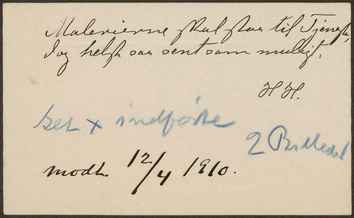 Malerierne skal staa til Tjeneste,
dog helst saa sent som muligt.
H.H.
set x indførte
2 Billeder
modt. 12/4 1910.